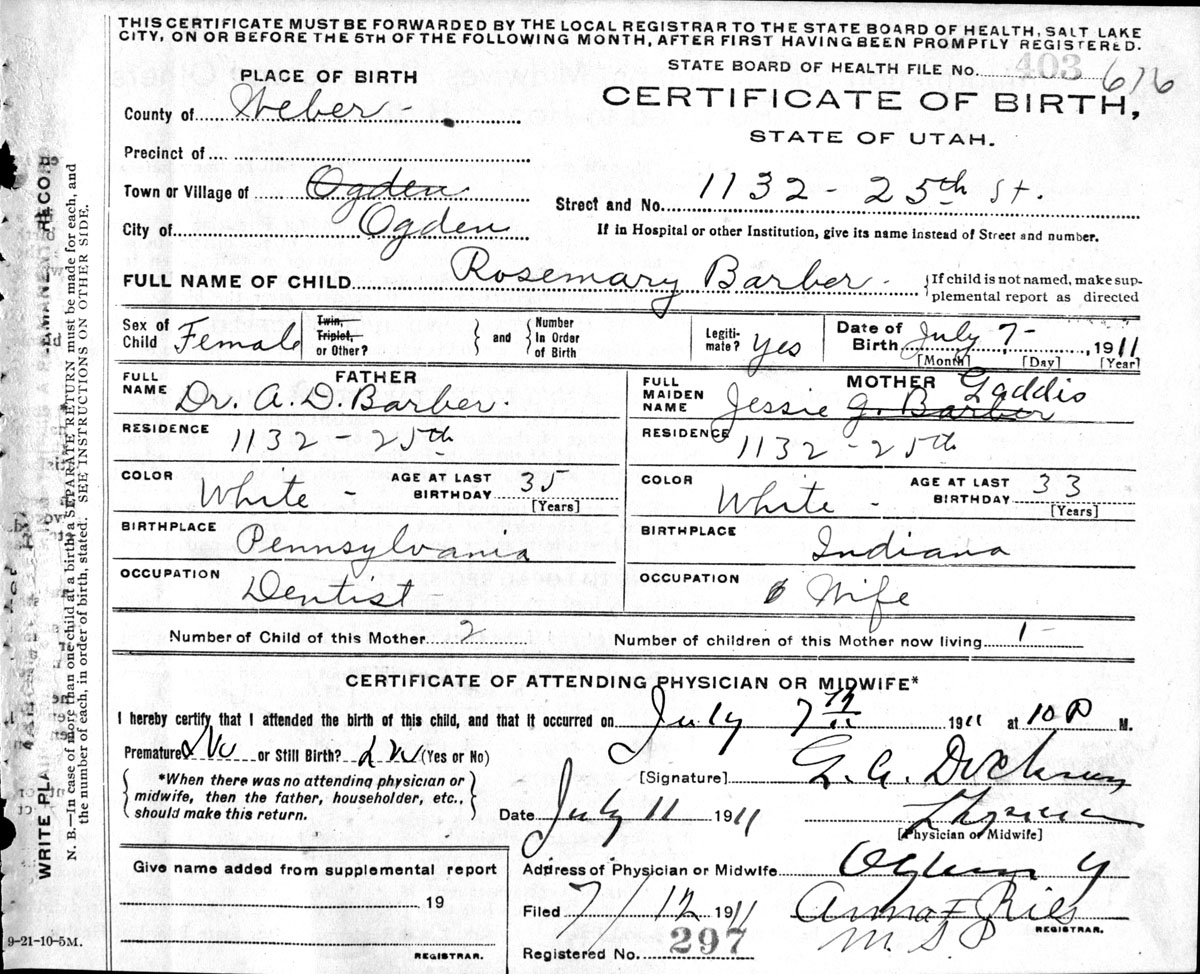 THIS CERTIFICATE MUST BE FORWARDED BY THE LOCAL REGISTRAR TO THE STATE BOARD OF HEALTH, SALT LAKE
CITY, ON OR BEFORE THE 5TH OF THE FOLLOWING MONTH, AFTER FIRST HAVING BEEN PROMPTLY REGISTERED.
STATE BOARD OF HEALTH FILE No. 403 616
PLACE OF BIRTH
CERTIFICATE OF BIRTH,
STATE OF UTAH.
County of Weber -
Precinct of
Town or Village of Ogden
Street and No. 1132 - 25th St.
City of Ogden
If in Hospital or other Institution, give its name instead of Street and number.
FULL NAME OF CHILD Rosemary Barber -
If child is not named, make sup-
plemental report as directed
Sex of Child Female
Twin, Triplet, or Other?
and
Number In Order of Birth
Legiti-mate? Yes
Date of Birth July 7 - , 1911
[Month] [Day] [Year]
FATHER
FULL NAME Dr. A. D. Barber.
RESIDENCE 1132 - 25th
COLOR White -
AGE AT LAST BIRTHDAY 35
[Years]
BIRTHPLACE Pennsylvania
OCCUPATION Dentist
MOTHER
FULL MAIDEN NAME Jessie G. Barber Gaddis
RESIDENCE 1132 - 25th
COLOR White -
AGE AT LAST BIRTHDAY 33
[Years]
BIRTHPLACE Indiana
OCCUPATION Wife
Number of Child of this Mother 2
Number of children of this Mother now living 1 -
CERTIFICATE OF ATTENDING PHYSICIAN OR MIDWIFE*
I hereby certify that I attended the birth of this child, and that it occurred on July 7th 1911 at 10 P M.
Premature No or Still Birth? (Yes or No)
*When there was no attending physician or
midwife, then the father, householder, etc.,
should make this return.
[Signature] G. A. Dickson
Date July 11 1911
[Physician or Midwife]
Address of Physician or Midwife Ogden U
Give name added from supplemental report
19
REGISTRAR.
Filed 7/12 1911 Anna F Ries
REGISTRAR.
Registered No. 297
9-21-10-5M.
N. B.—In case of more than one child at a birth, a SEPARATE RETURN must be made for each, and
the number of each, in order of birth, stated. SEE INSTRUCTIONS ON OTHER SIDE.